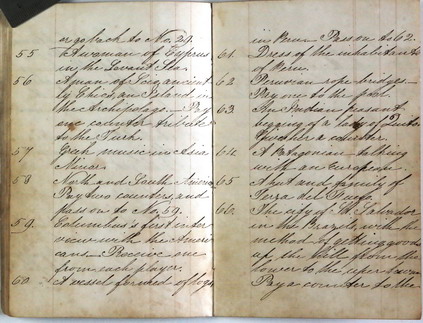 or go back to No. 29.
55 A woman of Cyprus
in the Levant Sea
56 A man of Scio, anciently
Chios, an Island in
the Archipelago. — Pay
one counter tribute
to the Turk
57 Greek music in Asia
Minor.
58 North and South America
Pay two counters, and
pass on to No. 59.
59. Columbus's first inter
view with the Ameri
cans — Receive one
from each player.
60. A vessel formed of logs
in Peru. Pass on to 62.
61. Dress of the inhabitants
of Peru.
62 Peruvian rope bridges —
Pay one to the pool.
63. An Indian peasant
begging a lady of Quito
a counter.
64. A Patagonian talking
with an European
65 A hut and family of
Terra del Fuego.
66. The city of St. Salvador
in the Brazils, with the
method of getting goods
up the hill from the
lower to the upper town
Pay a counter to the